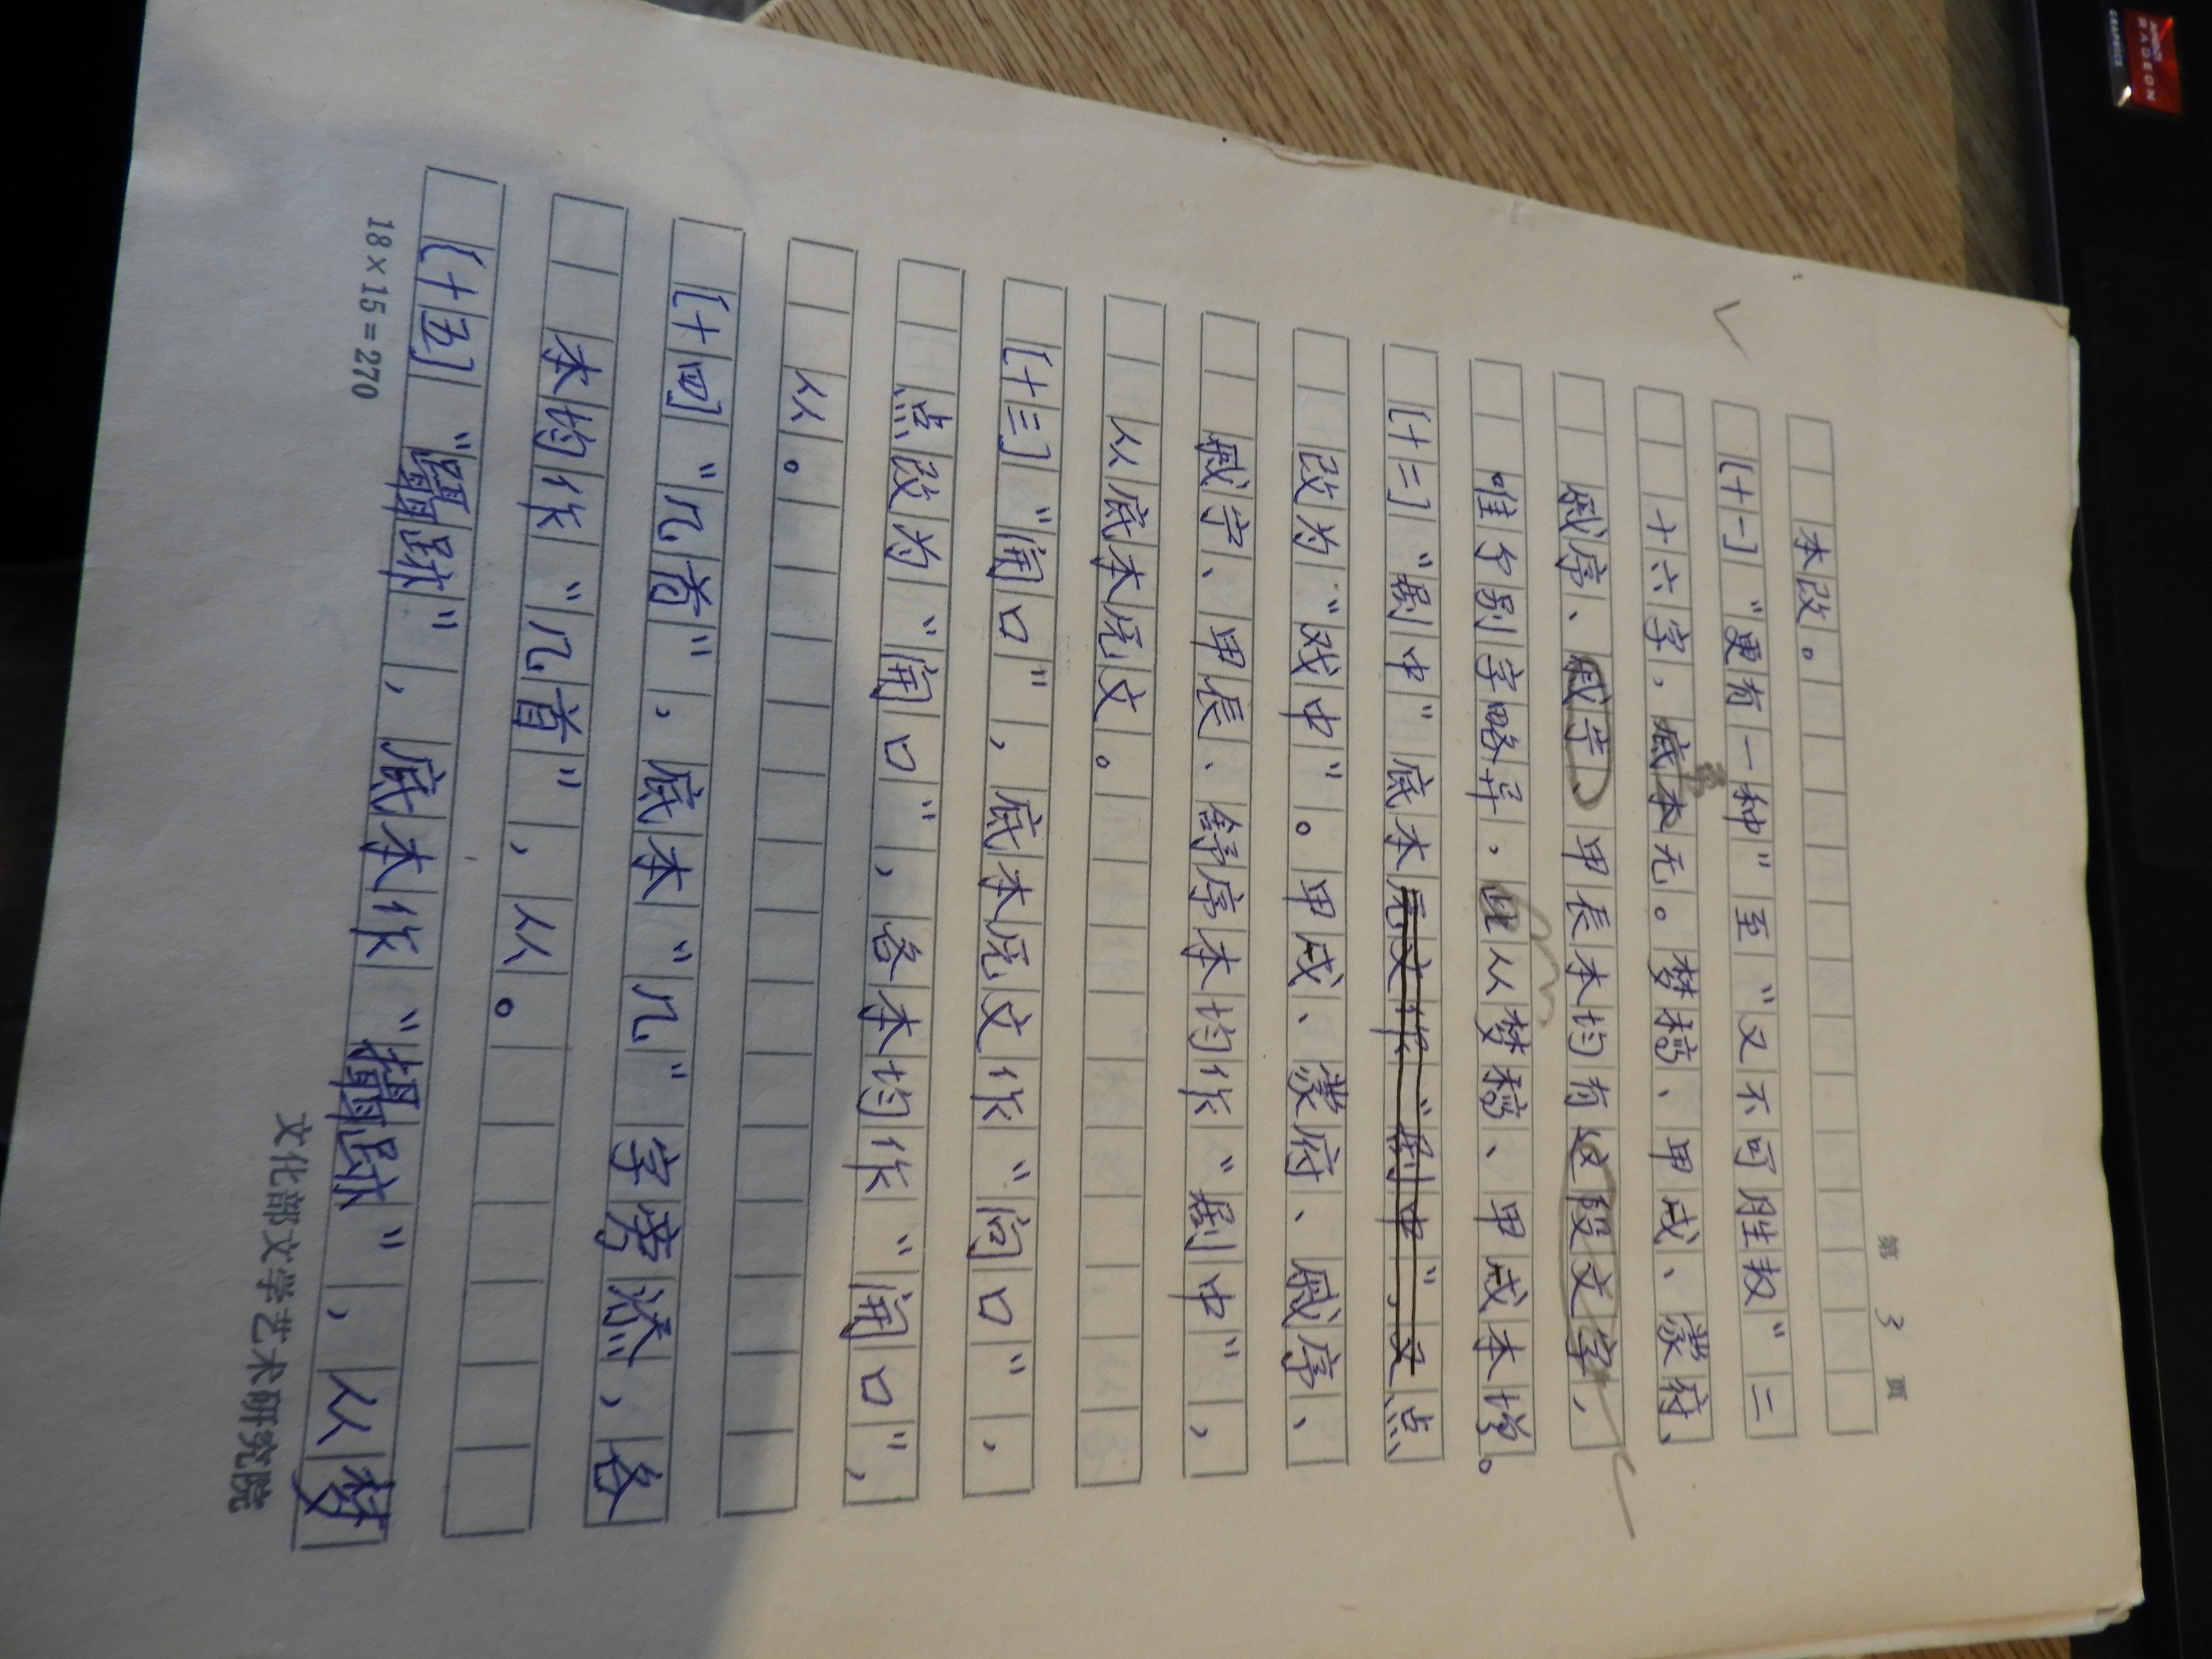 第 3 页
本改。
[十一] “更有一种”至“又不可胜数”二
十六字，底本无。梦稿、甲戌、蒙府、
戚序、戚宁、甲辰本均有这段文字，
唯个别字略异，此从梦稿、甲戌本增。
[十二] “剧中”底本原文作“剧中”，又点
改为“戏中”。甲戌、蒙府、戚序、
戚宁、甲辰、舒序本均作“剧中”，
从底本原文。
[十三] “闹口”，底本原文作“口”，
点改为“闹口”，各本均作“闹口”，
从。
[十四] “几首”，底本“几”字旁添，各
本均作“几首”，从。
[十五] “”，底本作“”，从梦
18×15=270
文化部文学艺术研究院
AMD
RADEON
GRAPHICS